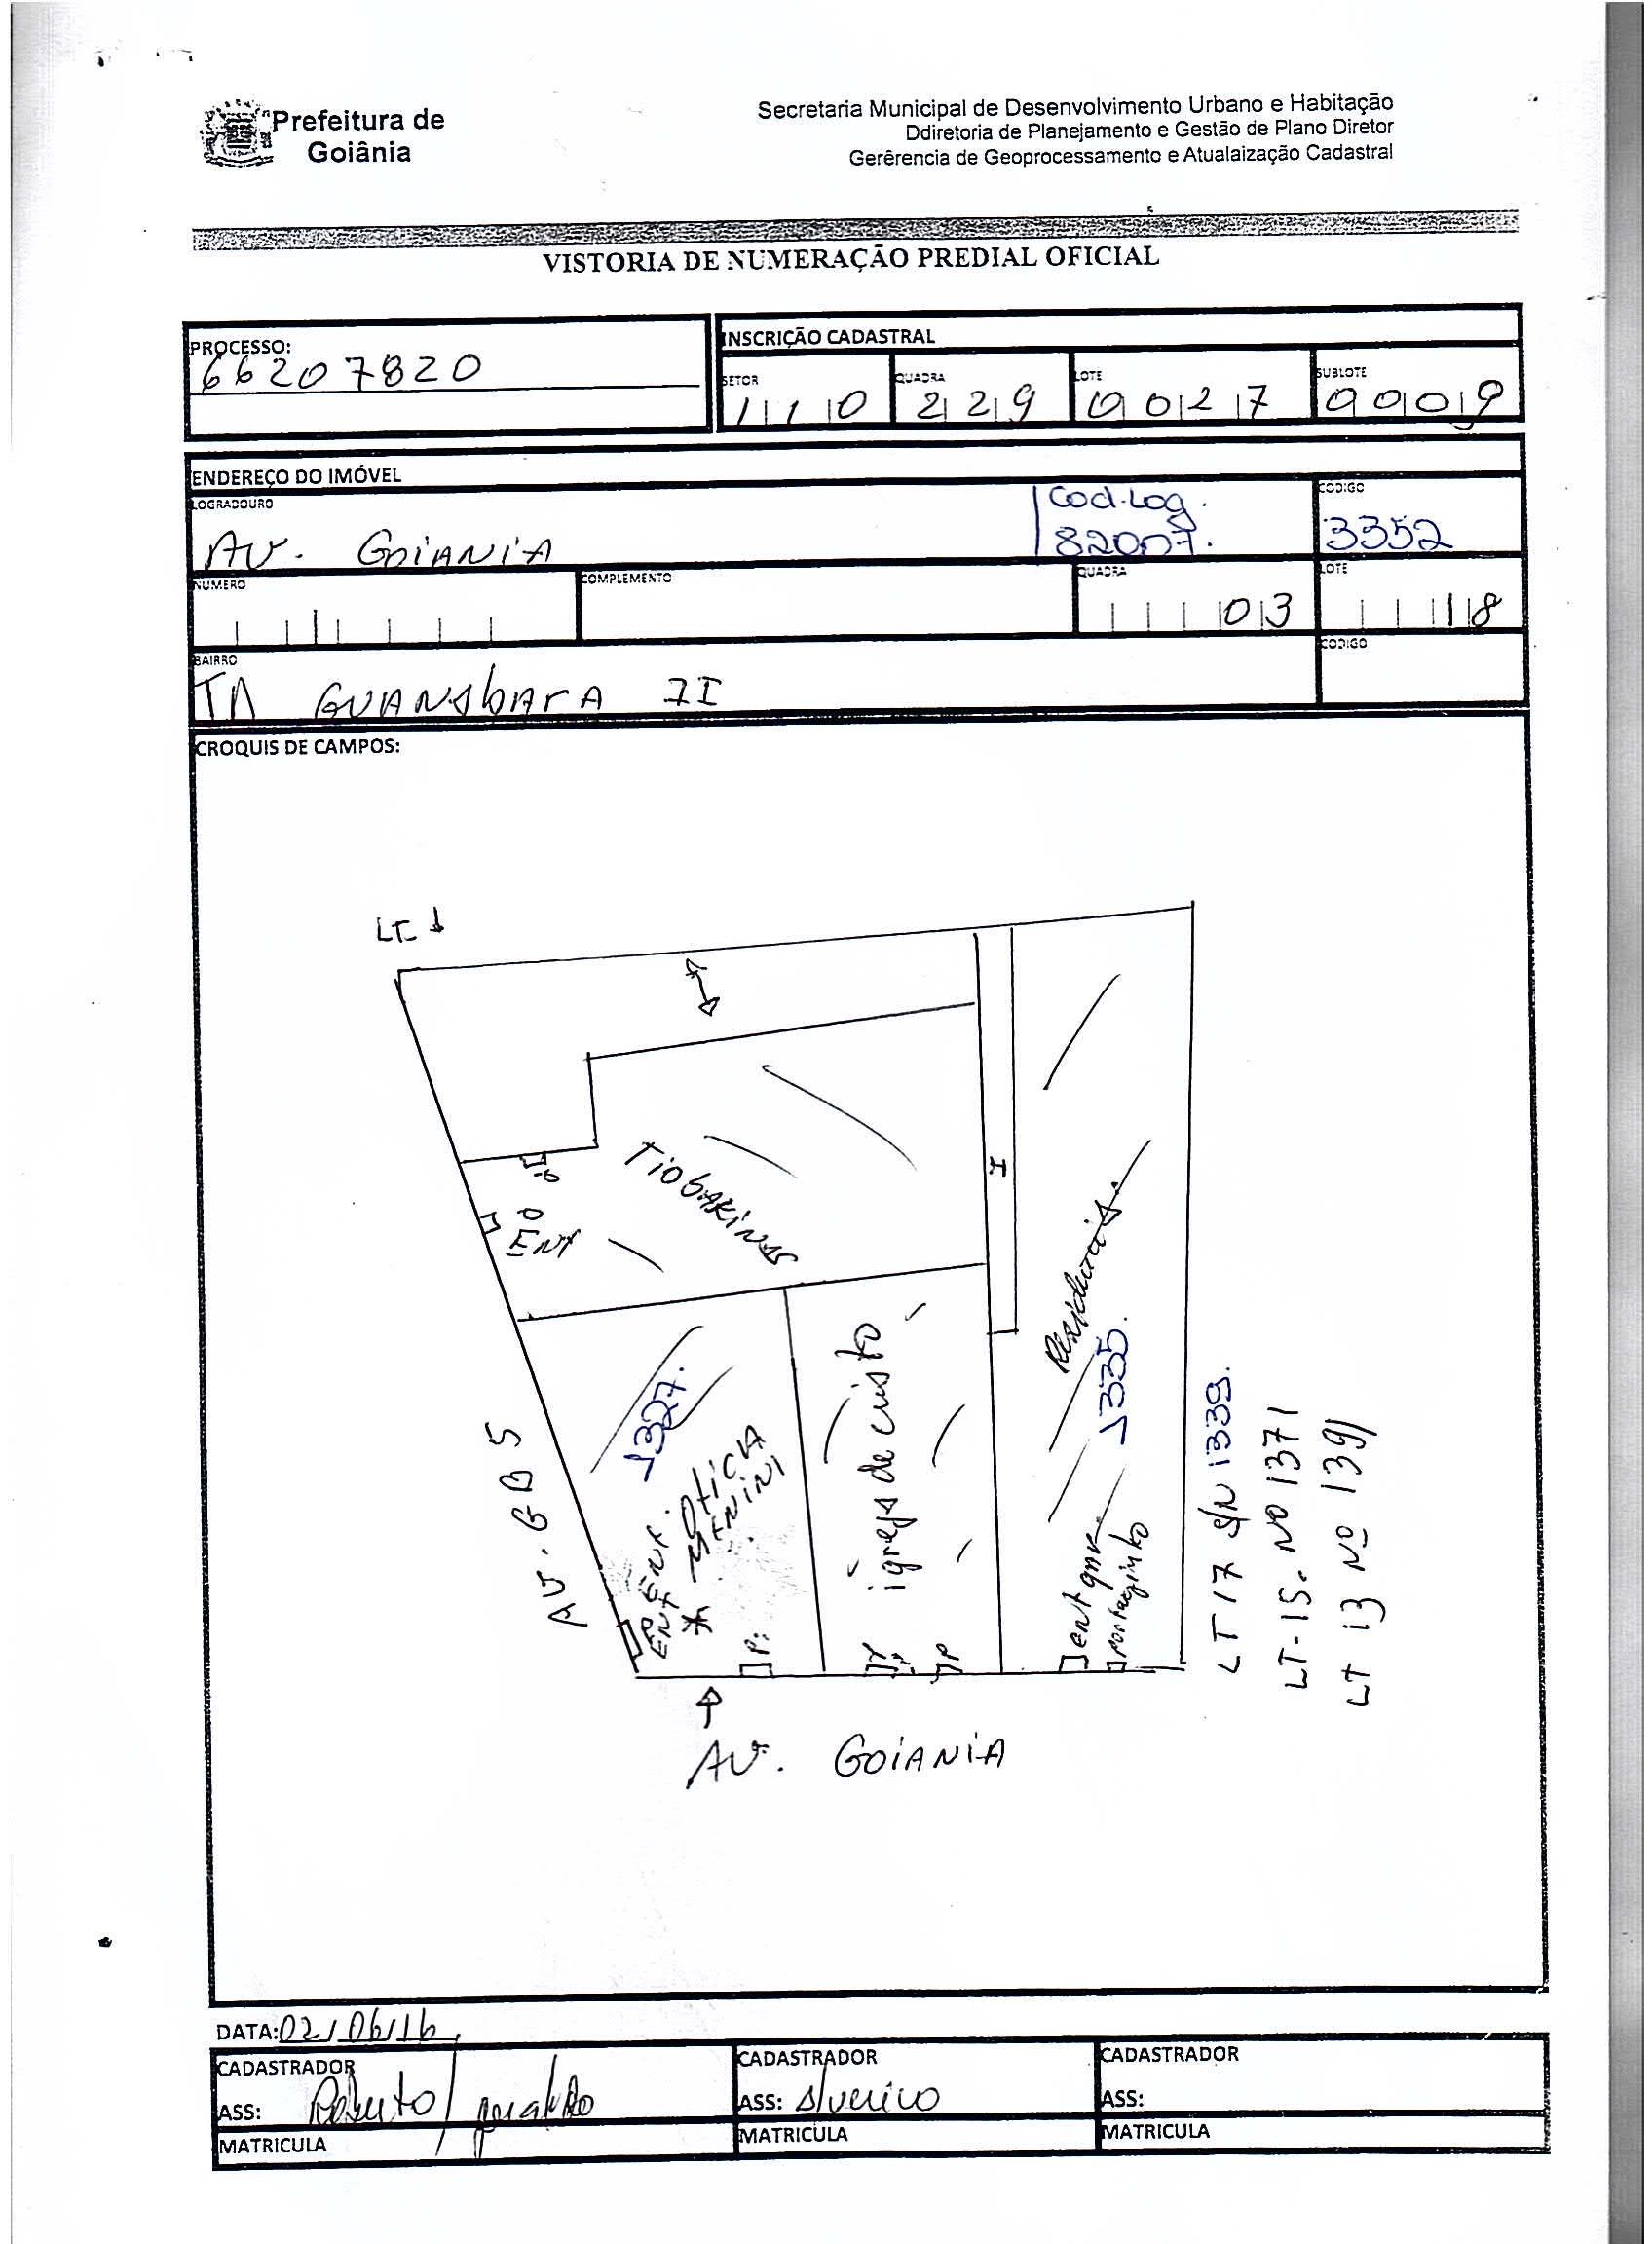 Prefeitura de
Goiânia
Secretaria Municipal de Desenvolvimento Urbano e Habitação
Ddiretoria de Planejamento e Gestão de Plano Diretor
Gerêrencia de Geoprocessamento e Atualaização Cadastral
VISTORIA DE NUMERAÇÃO PREDIAL OFICIAL
PROCESSO:
66207820
INSCRIÇÃO CADASTRAL
SETOR QUADRA LOTE SUBLOTE
110 229 0027 0009
ENDEREÇO DO IMÓVEL
LOGRADOURO
AV. GOIANIA
Cod-Log.
82007.
CODIGO
3352
NUMERO COMPLEMENTO QUADRA LOTE
03 18
BAIRRO CODIGO
GUANABARA II
CROQUIS DE CAMPOS:
LT
TIO BAKINAS
ENT
1327.
igreja de cristo
Residencia.
1335.
AV. GB 5
P.
P
ent gar.
portãozinho
LT 17 S/N 1339.
LT-15. Nº 1371
LT 13 Nº 1391
AV. GOIANIA
DATA: 02/06/16
CADASTRADOR CADASTRADOR CADASTRADOR
ASS: Roberto / Geraldo ASS: ASS:
MATRICULA MATRICULA MATRICULA